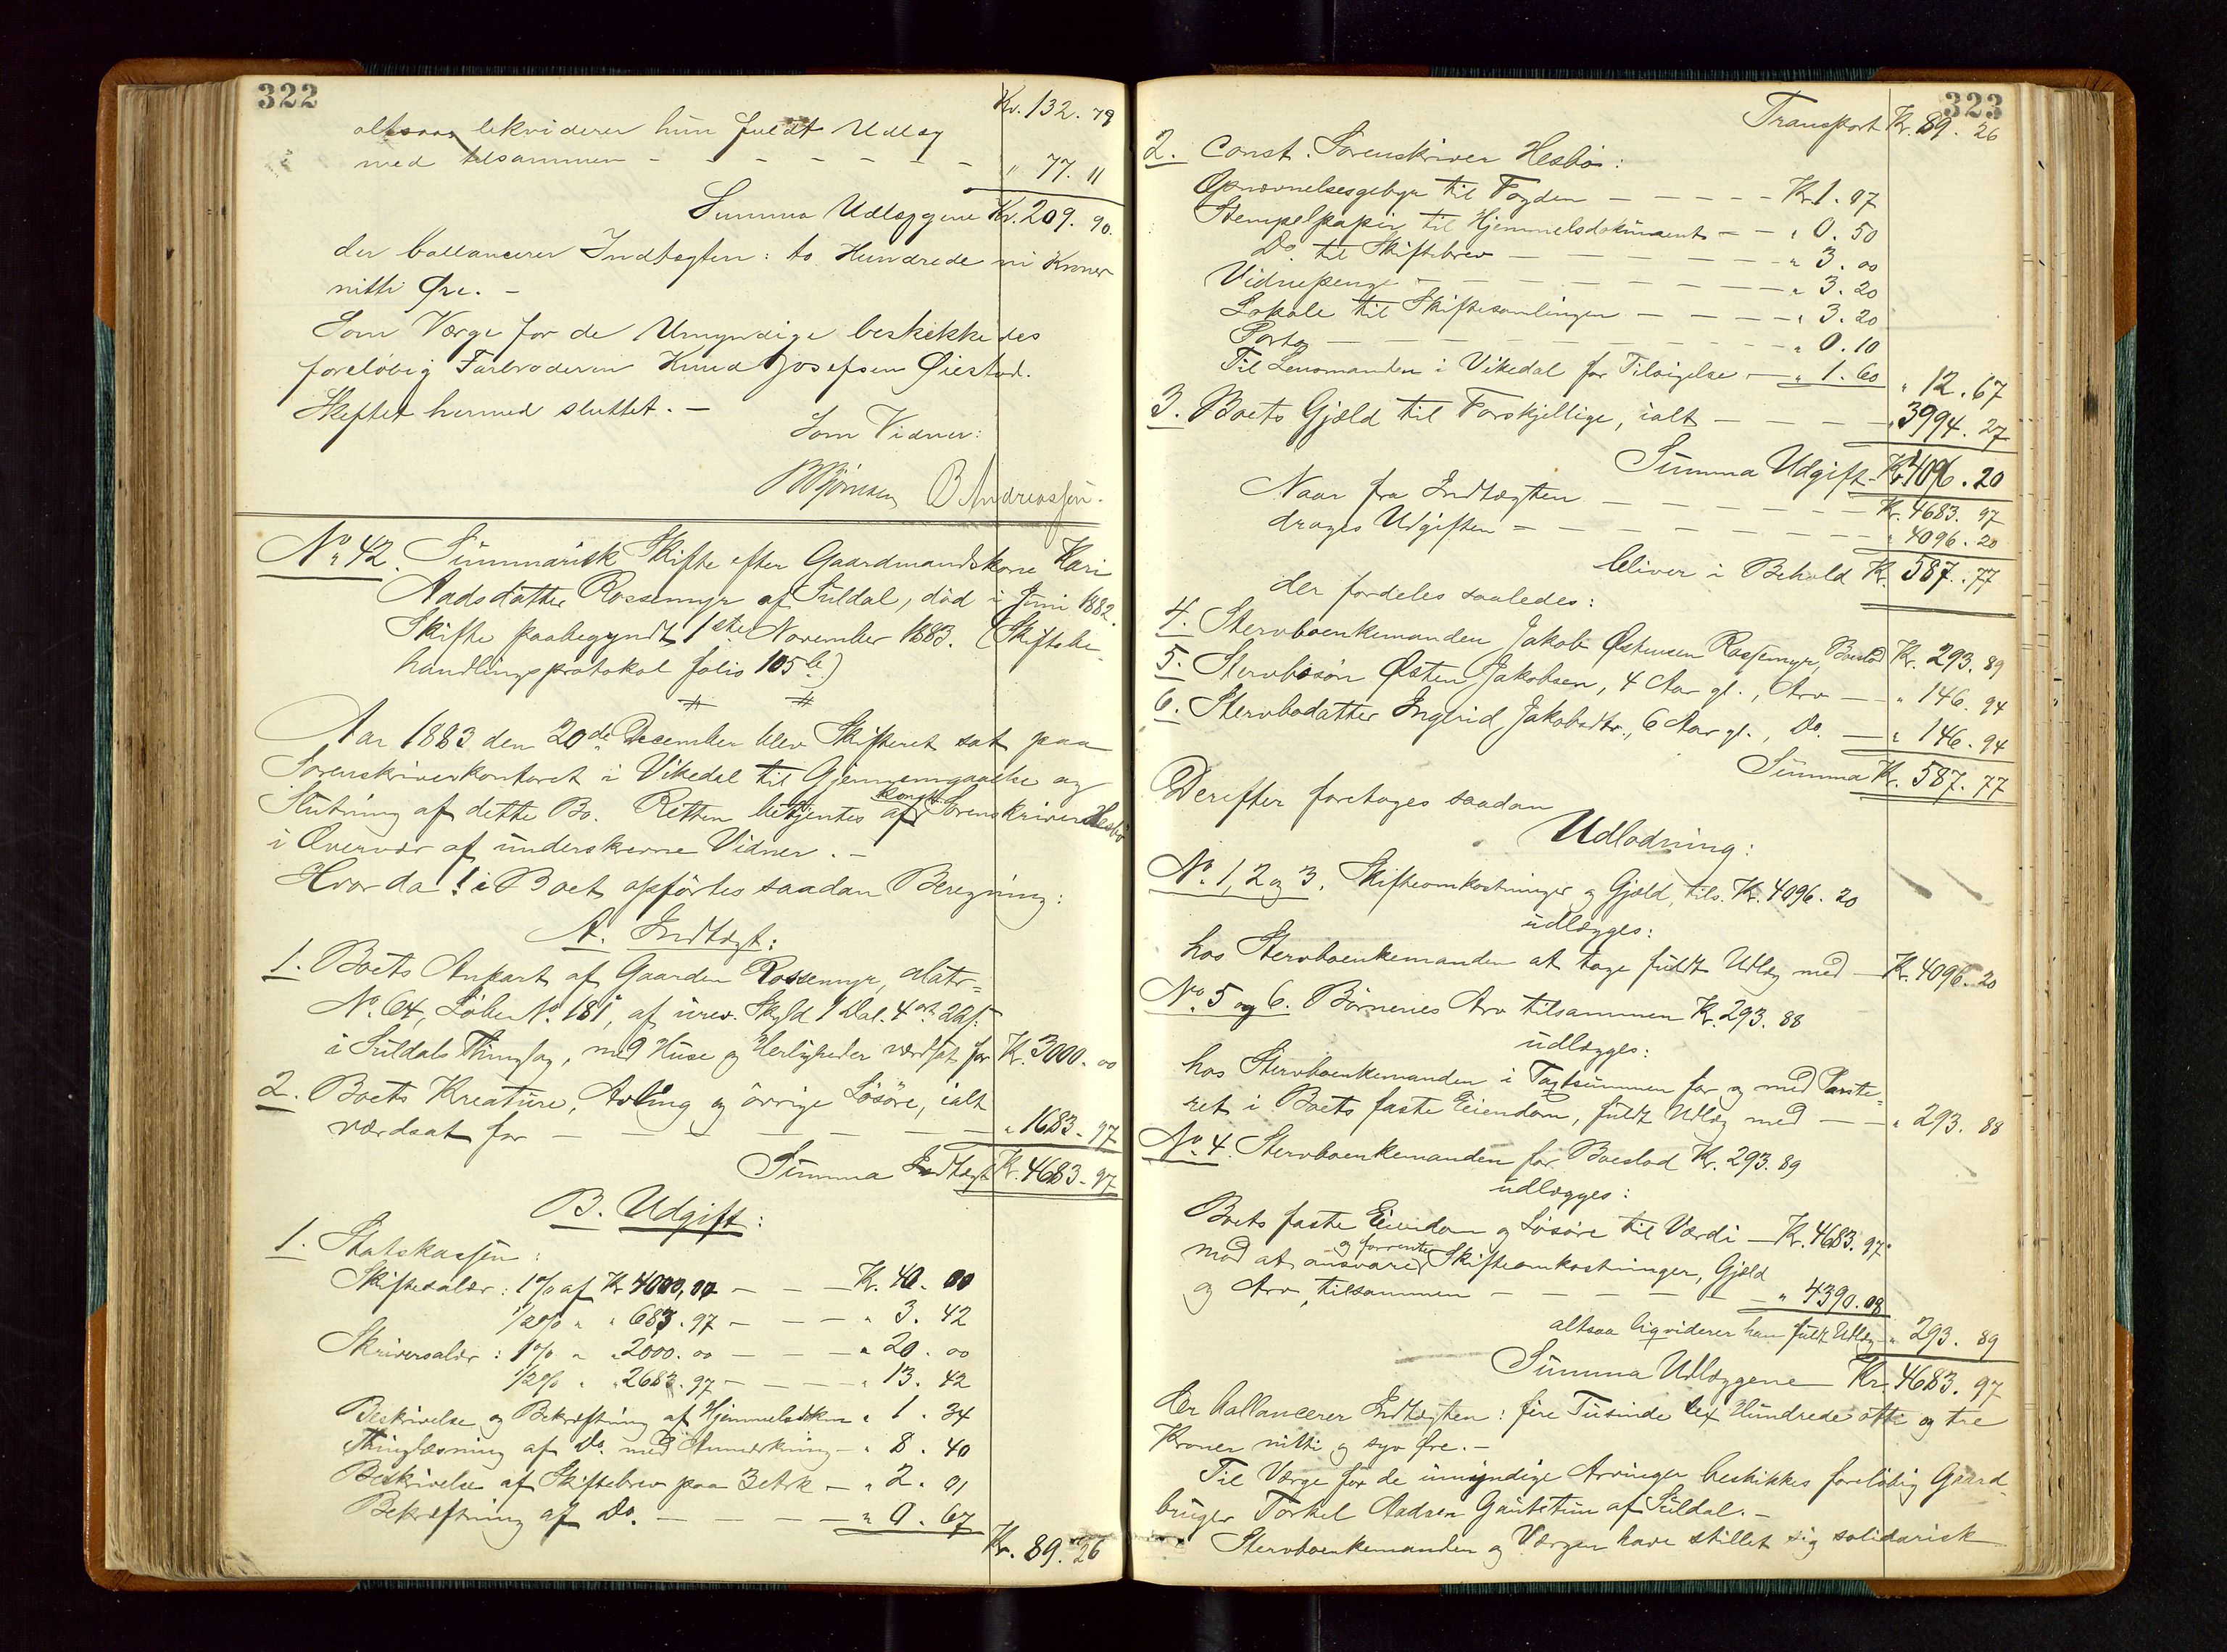 322
Kr. 132. 79
altsaa likviderer hun fuldt Udlæg
med tilsammen - - - - - - " 77. 11
Summa Udlæggene Kr. 209. 90.
der ballancerer Indtægten: to Hundrede ni Kroner
nitti Øre. -
Som Værge for de Umyndige beskikkedes
foreløbig Farbroderen Knud Josefsen Øiestad.
Skiftet hermed sluttet. -
Som Vidner:
B Andreassen.
No 42. Summarisk Skifte efter Gaardmandskone Kari
Aadsdatter Rossemyr af Suldal, död i Juni 1882.
Skifte paabegyndt 1ste November 1883. (Skiftebe-
handlingsprotokol folio 105 b.)
Aar 1883 den 20de December blev Skifteret sat paa
Sorenskriverkontoret i Vikedal til Gjennemgaaelse og
Slutning af dette Bo. Retten betjentes af konst. Sorenskriver Hesbö
i Overvær af underskrevne Vidner. -
Hvorda i Boet opförtes saadan Beregning:
A. Indtægt:
1. Boets Anpart af Gaarden Rossemyr, Matr-
No. 64, Löbe No. 181, af urev. Skyld 1 Dal. 4 ort 22 ß.
i Suldals Thinglag, med Huse og Herligheder værdsat for Kr. 3000. 00
2. Boets Kreature, Avling og övrige Lösöre, ialt
værdsat for - - - - - - - " 1683. 97
Summa Indtægt Kr. 4683. 97
B. Udgift:
1. Statskassen:
Skiftesalær: 1 % af Kr 4000,00 - - - Kr. 40. 00
1/2 % " " 683. 97 - - - " 3. 42
Skriversalær: 1 % " " 2000. 00 - - - " 20. 00
1/2 % " " 2683. 97 - - - " 13. 42
Beskrivelse og Bekræftning af Hjemmelsdokum. " 1. 34
Thinglæsning af Do. med Anmærkning - " 8. 40
Beskrivelse af Skiftebrev paa 3 Ark - " 2. 01
Bekræftning af Do. - - - - " 0. 67
Kr. 89. 26
323
Transport Kr. 89. 26
2. Const. Sorenskriver Hesbö:
Opnævnelsesgebyr til Fogden - - - - Kr. 1. 07
Stempelpapir til Hjemmelsdokument - - " 0. 50
Do. til Skiftebrev - - - - - " 3. 00
Vidnepenge - - - - - - " 3. 20
Lokale til Skiftesamlingen - - - - " 3. 20
Porto - - - - - - - " 0. 10
Til Lensmanden i Vikedal for Tilsigelse - " 1. 60 " 12. 67
3. Boets Gjæld til Forskjellige, ialt - - - - " 3994. 27
Summa Udgift Kr. 4096. 20
Naar fra Indtægten - - - - - - Kr. 4683. 97
drages Udgiften - - - - - - " 4096. 20
bliver i Behold Kr. 587. 77
der fordeles saaledes:
4. Stervboenkemanden Jakob Östensen Rossemyr, Boeslod Kr. 293. 89
5. Stervbosön Östen Jakobsen, 4 Aar gl., Arv - " 146. 94
6. Stervbodatter Ingbrid Jakobsdtr., 6 Aar gl., Do. - " 146. 94
Summa Kr. 587. 77
Derefter foretoges saadan
Udlodning:
No. 1, 2 og 3. Skifteomkostninger og Gjæld, tils. Kr. 4096. 20
udlægges:
hos Stervboenkemanden at tage fuldt Udlæg med - Kr. 4096. 20
No. 5 og 6. Börnenes Arv tilsammen Kr. 293. 88
udlægges:
hos Stervboenkemanden i Taxtsummen for og med Pante-
ret i Boets faste Eiendom, fuldt Udlæg med - - " 293. 88
No. 4. Stervboenkemanden for Boeslod Kr. 293. 89
udlægges:
Boets faste Eiendom og Lösöre til Værdi - Kr. 4683. 97.
mod at ansvare og forrente Skifteomkostninger, Gjæld
og Arv, tilsammen - - - - - " 4390. 08
altsaa liqviderer han fuldt Udlæg - " 293. 89
Summa Udlæggene Kr. 4683. 97
der ballancerer Indtægten: fire Tusinde sex Hundrede otti og tre
Kroner nitti og syv Øre. -
Til Værge for de umyndige Arvinger beskikkes foreløbig Gaard-
bruger Torkel Aadsen Gautetun af Suldal. -
Stervboenkemanden og Værgen have stillet sig solidarisk